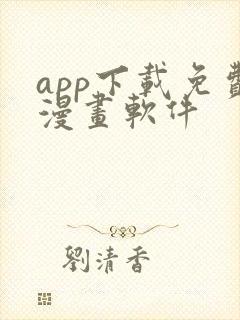 app下載免費
漫畫軟件
劉清香